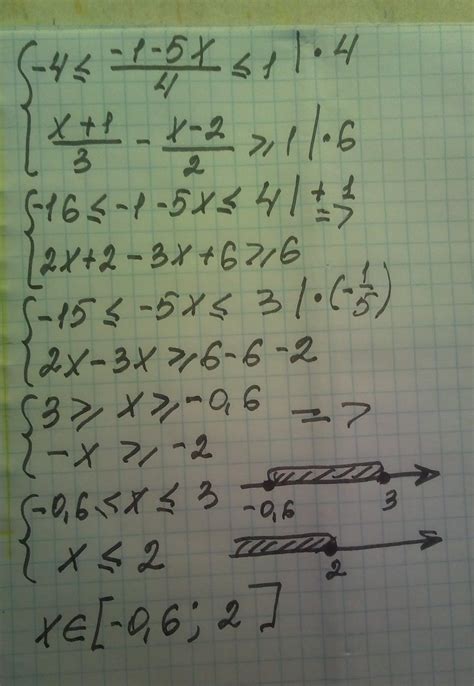 -4 ≤ (-1-5x)/4 ≤ 1 | · 4
(x+1)/3 - (x-2)/2 ≥ 1 | · 6
-16 ≤ -1-5x ≤ 4 | +1 =>
2x+2-3x+6 ≥ 6
-15 ≤ -5x ≤ 3 | · (-1/5)
2x-3x ≥ 6-6-2
3 ≥ x ≥ -0,6 =>
-x ≥ -2
-0,6 ≤ x ≤ 3
-0,6 3
x ≤ 2
2
x ∈ [-0,6; 2]